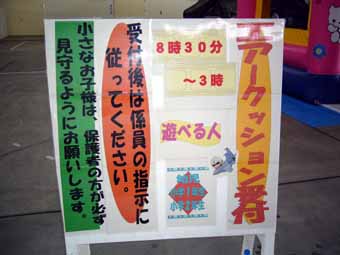 エアークッション受付
8時30分
～3時
遊べる人
幼児
小学1年生
小学2年生
受付後は係員の指示に
従ってください。
小さなお子様は、保護者の方が必ず
見守るようにお願いします。